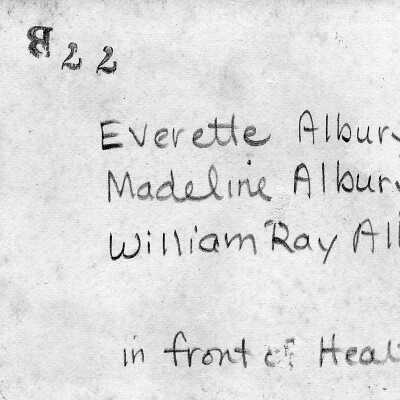 B22
Everette Albury
Madeline Albury
William Ray
in front of